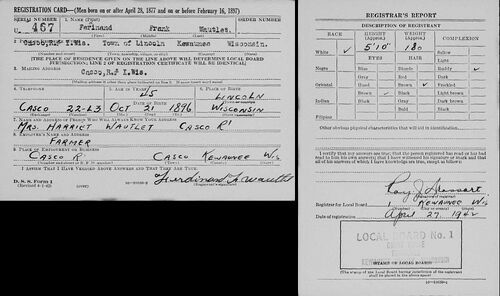 REGISTRATION CARD—(Men born on or after April 28, 1877 and on or before February 16, 1897)
SERIAL NUMBER
1. NAME (Print)
ORDER NUMBER
U 467
Ferinand Frank Wautles.
(First) (Middle) (Last)
2. PLACE OF RESIDENCE (Print)
Casco,R#1.Wis. Town of Lincoln Kewaunee Wisconsin.
(Number and street) (Town, township, village, or city) (County) (State)
[THE PLACE OF RESIDENCE GIVEN ON THE LINE ABOVE WILL DETERMINE LOCAL BOARD
JURISDICTION; LINE 2 OF REGISTRATION CERTIFICATE WILL BE IDENTICAL]
3. MAILING ADDRESS
Casco,R#1.Wis.
(Mailing address if other than place indicated on line 2. If same insert word same)
4. TELEPHONE
5. AGE IN YEARS
6. PLACE OF BIRTH
45
LINCOLN
(Town or county)
DATE OF BIRTH
CASCO 22-L3 OCT 21 1896 WISCONSIN
(Exchange) (Number) (Mo.) (Day) (Yr.) (State or country)
7. NAME AND ADDRESS OF PERSON WHO WILL ALWAYS KNOW YOUR ADDRESS
MRS. HARRIET WAUTLET CASCO R1
8. EMPLOYER'S NAME AND ADDRESS
FARMER
9. PLACE OF EMPLOYMENT OR BUSINESS
CASCO R1 CASCO KEWAUNEE WIS
(Number and street or R. F. D. number) (Town) (County) (State)
I AFFIRM THAT I HAVE VERIFIED ABOVE ANSWERS AND THAT THEY ARE TRUE.
D. S. S. Form 1
(Revised 4-1-42) (over)
Ferdinand F. Wautlet
(Registrant's signature)
REGISTRAR'S REPORT
DESCRIPTION OF REGISTRANT
RACE
HEIGHT (Approx.)
WEIGHT (Approx.)
COMPLEXION
White ✓ 5'10" 180 Sallow
EYES HAIR Light
Negro Blue Blonde Ruddy ✓
Gray Red Dark
Oriental Hazel Brown ✓ Freckled
Brown ✓ Black Light brown
Indian Black Gray Dark brown
Bald Black
Filipino
Other obvious physical characteristics that will aid in identification
I certify that my answers are true; that the person registered has read or has had
read to him his own answers; that I have witnessed his signature or mark and that
all of his answers of which I have knowledge are true, except as follows:
(Signature of registrar)
Registrar for Local Board 1 KEWAUNEE WIS
(Number) (City or county) (State)
Date of registration April 27, 1942
LOCAL BOARD No. 1
(STAMP OF LOCAL BOARD)
(The stamp of the Local Board having jurisdiction of the registrant
shall be placed in the above space)